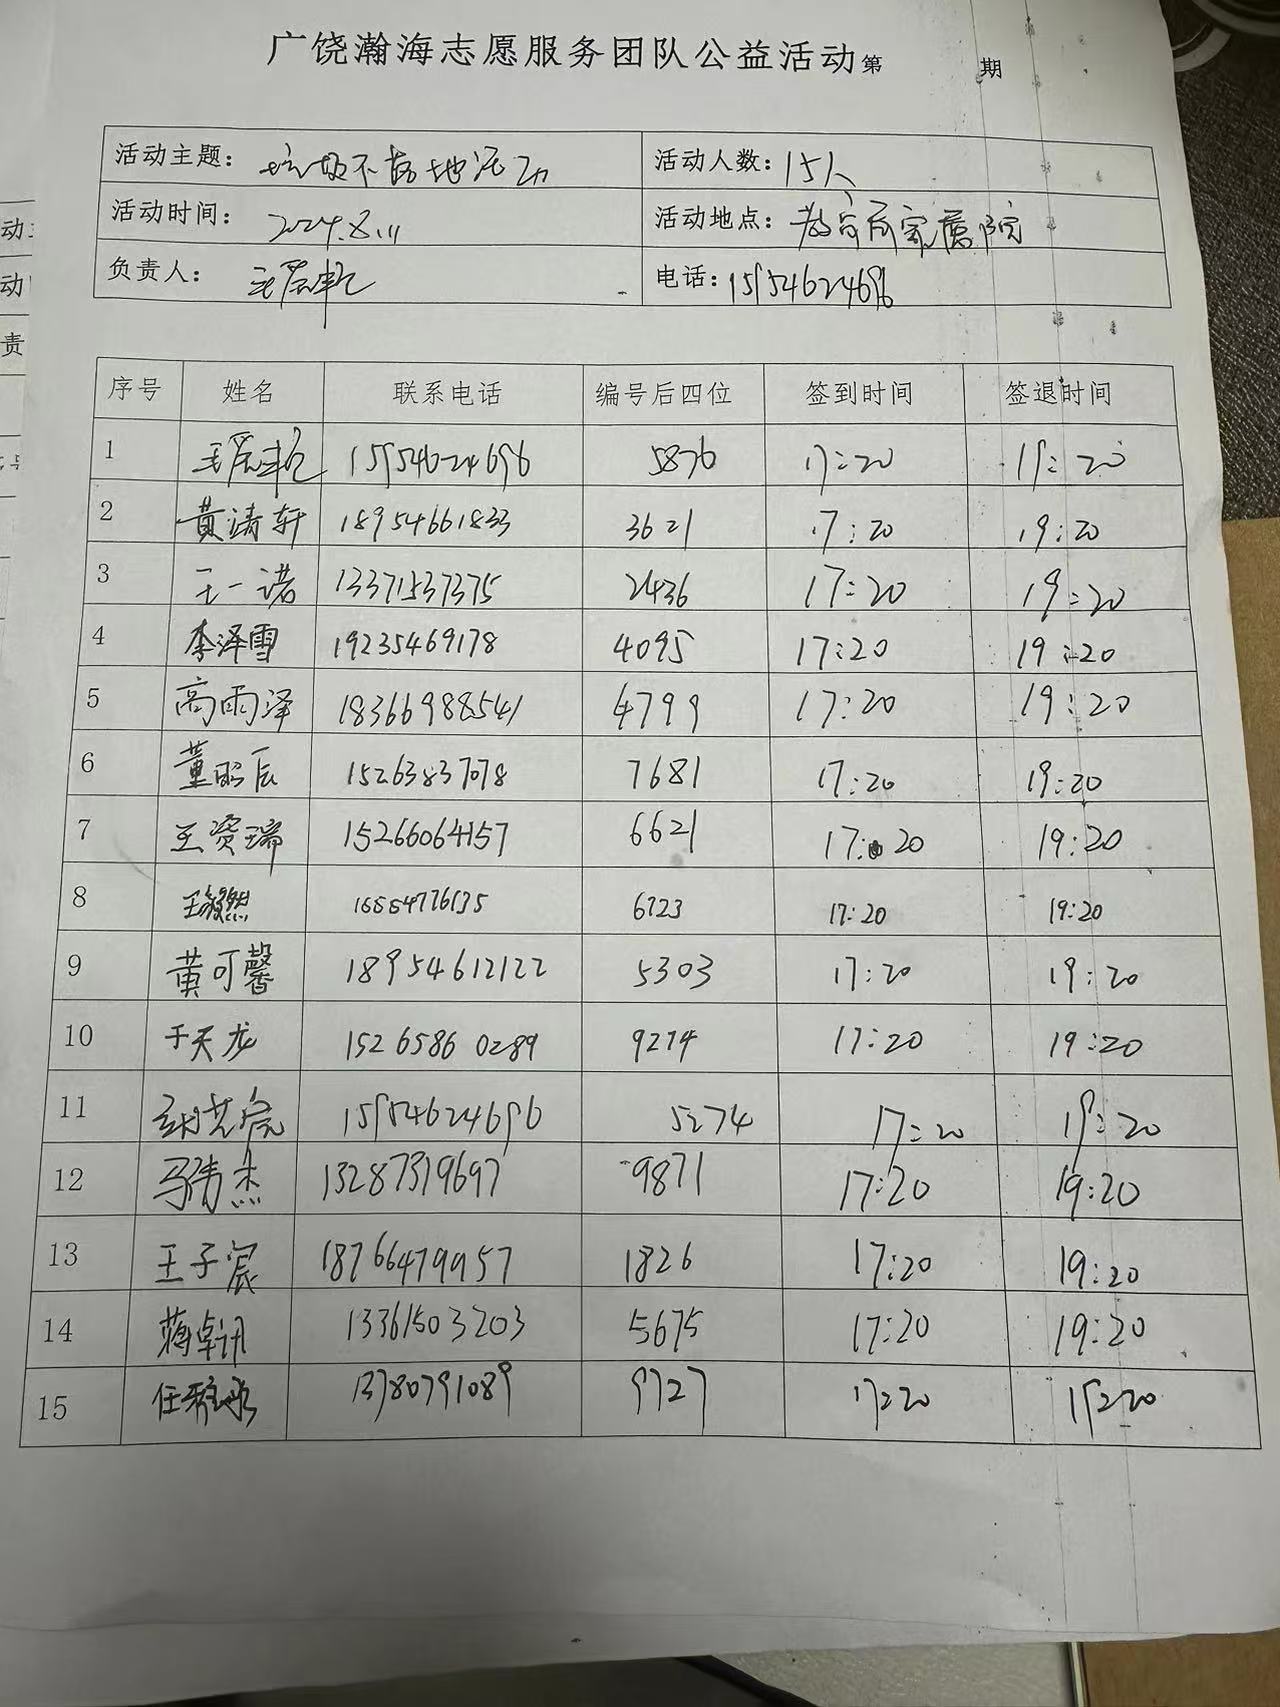 广饶瀚海志愿服务团队公益活动第 期
活动主题： 垃圾不落地活动 活动人数：15人
活动时间： 2024.8.11 活动地点：教育局家属院
负责人： 电话：15954624696
序号 姓名 联系电话 编号后四位 签到时间 签退时间
1 15954624696 5876 17:20 19:20
2 黄涛轩 18954661833 3621 17:20 19:20
3 王一诺 13371537375 2436 17:20 19:20
4 李泽雪 19235469178 4095 17:20 19:20
5 高雨泽 18366988541 4799 17:20 19:20
6 董昭辰 15263837078 7681 17:20 19:20
7 王资瑞 15266064157 6621 17:20 19:20
8 王毅然 6723 17:20 19:20
9 黄可馨 18954612122 5303 17:20 19:20
10 于天龙 15265860289 9274 17:20 19:20
11 15954624696 5274 17:20 19:20
12 马伟杰 13287319697 9871 17:20 19:20
13 王子宸 18766479957 1826 17:20 19:20
14 蒋卓讯 13361503203 5675 17:20 19:20
15 13780791089 9727 17:20 19:20